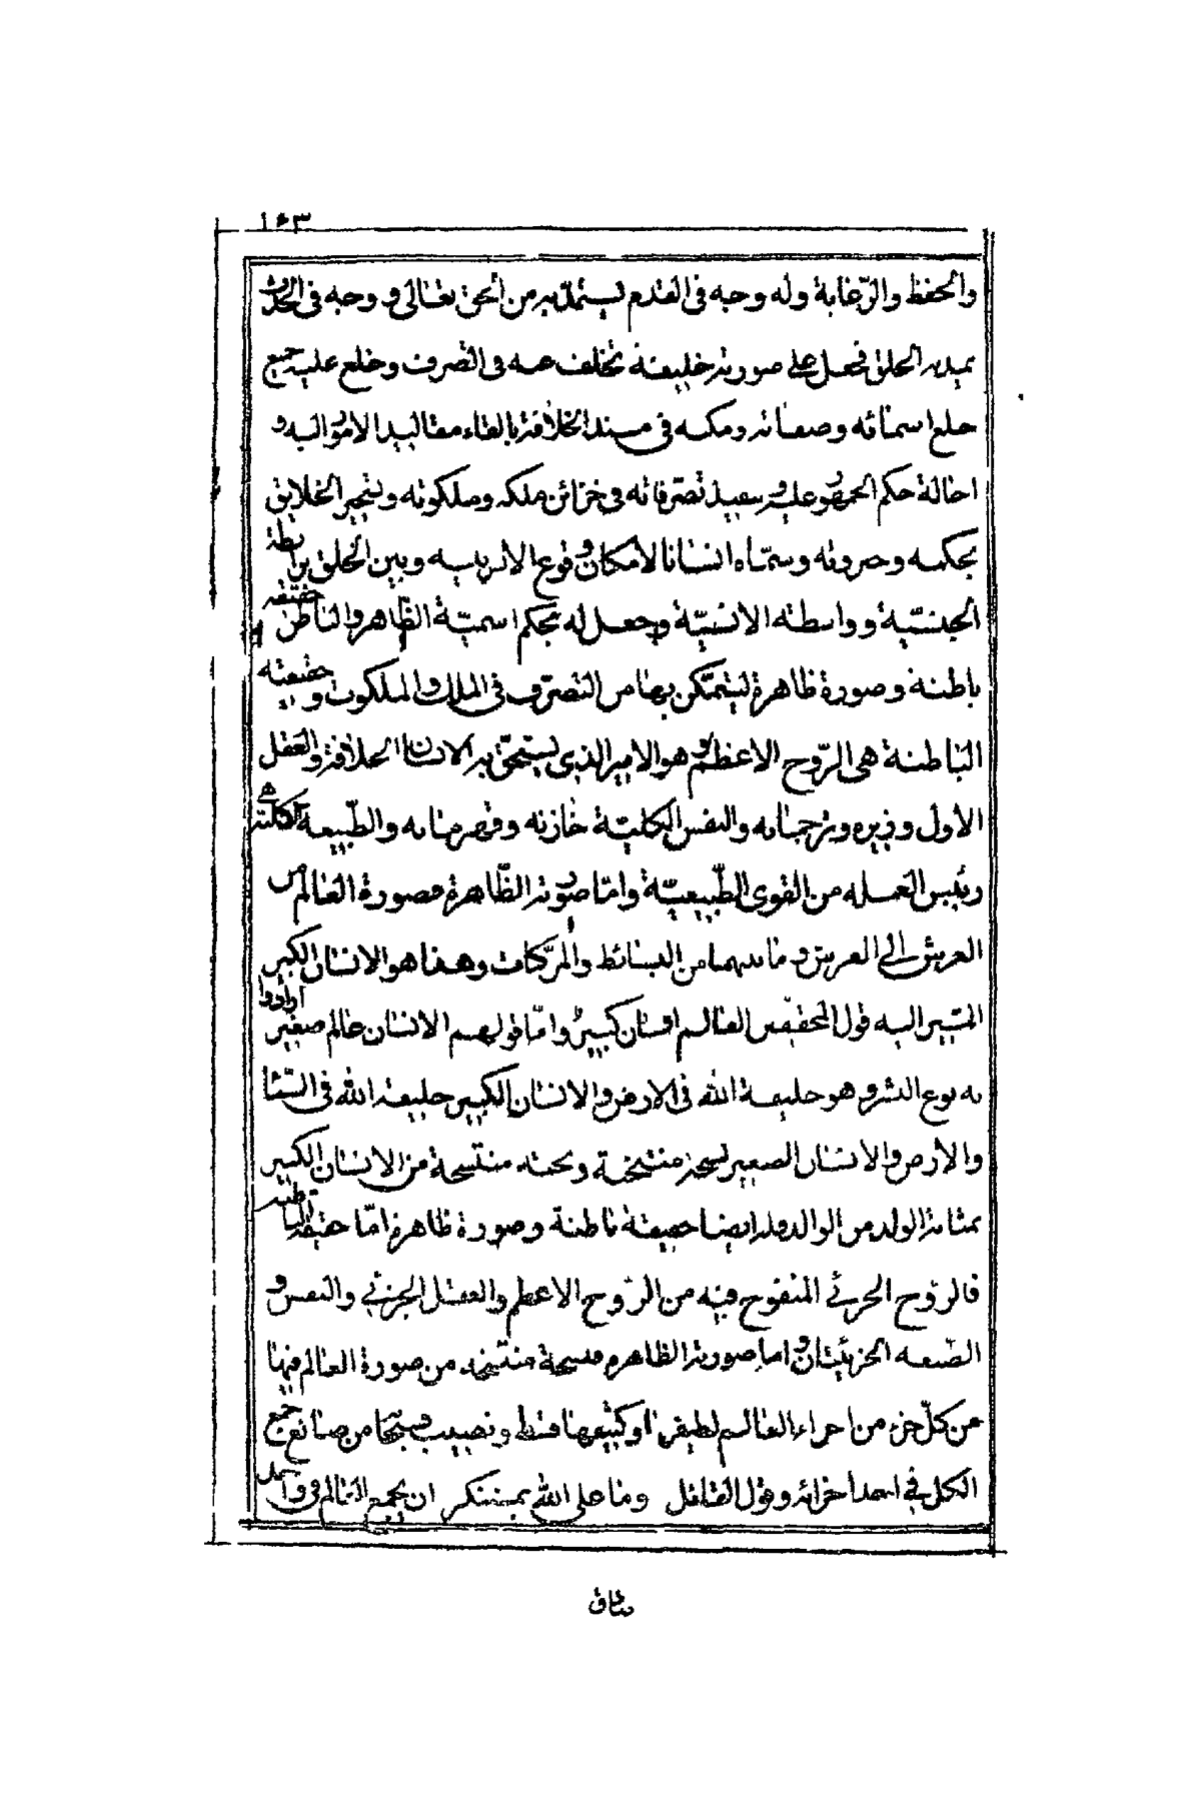 ١٤٣
والحفظ والرّعاية وله وجه فى القدم يستمدّ به من الحق تعالى ووجه فى الحدوث
يمد به الخلق فجعل على صورته خليفة تخلف عنه فى التصرف وخلع عليه جميع
خلع اسمائه وصفاته ومكنه فى مسند الخلافة بالقاء مقاليد الامور اليه و
احالة حكم الجمهور عليه وتنفيذ تصرفاته فى خزائن ملكه وملكوته وتسخير الخلايق
بحكمه وجبروته وسمّاه انسانا لامكان وقوع الانس بينه وبين الخلق برابطة
الجنسيّة وواسطة الانسيّة وجعل له بحكم اسميّة الظّاهر والباطن حقيقة
باطنة وصورة ظاهرة ليتمكّن بهما من التصرّف فى الملك والملكوت وحقيقته
الباطنة هى الرّوح الاعظم وهو الامير الذى يستحق به الانسان الخلافة والعقل
الاول وزيره وترجمانه والنفس الكليّة خازنه وقهرمانه والطّبيعة الكلية هى
رئيس العمله من القوى الطّبيعيّة وامّا صورته الظّاهرة فصورة العالم من
العرش الى الفرش وما بينهما من البسائط والمركّبات وهذا هو الانسان الكبير
المشير اليه قول المحققين العالم انسان كبير وامّا قولهم الانسان عالم صغير ارادوا
به نوع البشر وهو خليفة الله فى الارض والانسان الكبير خليفة الله فى السّماء
والارض والانسان الصغير نسخة منتخبة ونخبة منتسخة من الانسان الكبير
بمثابة الولد من الوالد وله ايضا حقيقة باطنة وصورة ظاهرة امّا حقيقته الباطنة
فالرّوح الجزئى المنفوخ فيه من الرّوح الاعظم والعقل الجزئى والنفس و
الطبيعة الجزئيتان واما صورته الظاهرة فنسخة منتخبة من صورة العالم فيها
من كلّ جزء من اجزاء العالم لطيفها وكثيفها قسط ونصيب فسبحان من صانع جمع
الكل فى احد اجزائه وقول القائل وما على الله بمستنكر ان يجمع العالم فى واحد